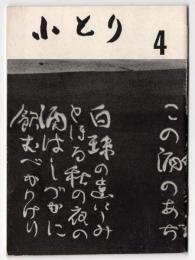 小とり
4
この酒のあぢ
白珠の歯にしみ
とほる秋の夜の
酒はしづかに
飲むべかりけり